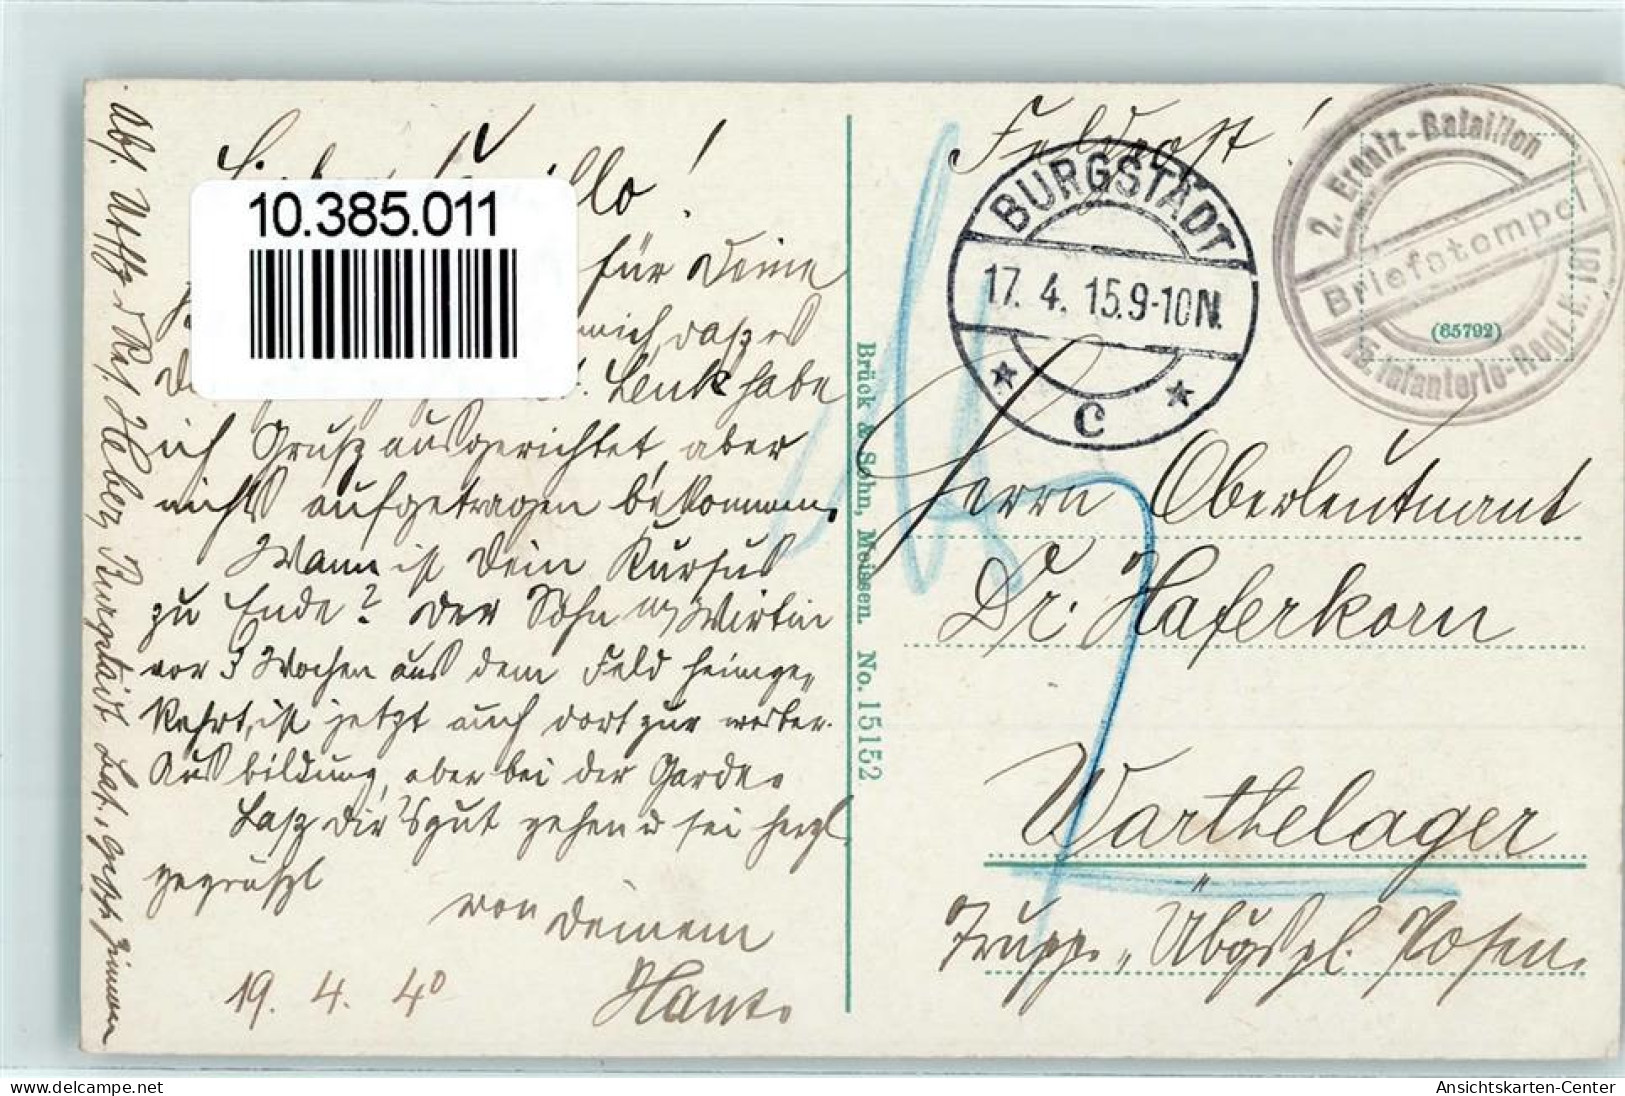 Lieber Camillo!
10.385.011
für Deine
mich, daß es
Lenk habe
ich Gruß ausgerichtet, aber
nichts aufgetragen bekommen.
Wann ist Dein Kursus
zu Ende? Der Sohn m/ Wirtin
vor 3 Wochen aus dem Feld heimge„
kehrt, ist jetzt auch dort zur weiter.
Ausbildung, aber bei der Garde.
Laß Dir's gut gehen u sei herzl.
gegrüßt
von Deinem
19. 4. 40
Abs. Uoffz d Res. Heber, Burgstädt
Brück & Sohn, Meissen. No. 15152
Feldpost!
BURGSTÄDT
17. 4. 15. 9-10 N.
c
2. Ersatz-Bataillon
Briefstempel
15. Infanterie-Regt. N. 181
(65792)
Herrn Oberleutnant
Dr. Haferkorn
Warthelager
Trupp. „Übgspl. Posen.
www.delcampe.net
Ansichtskarten-Center